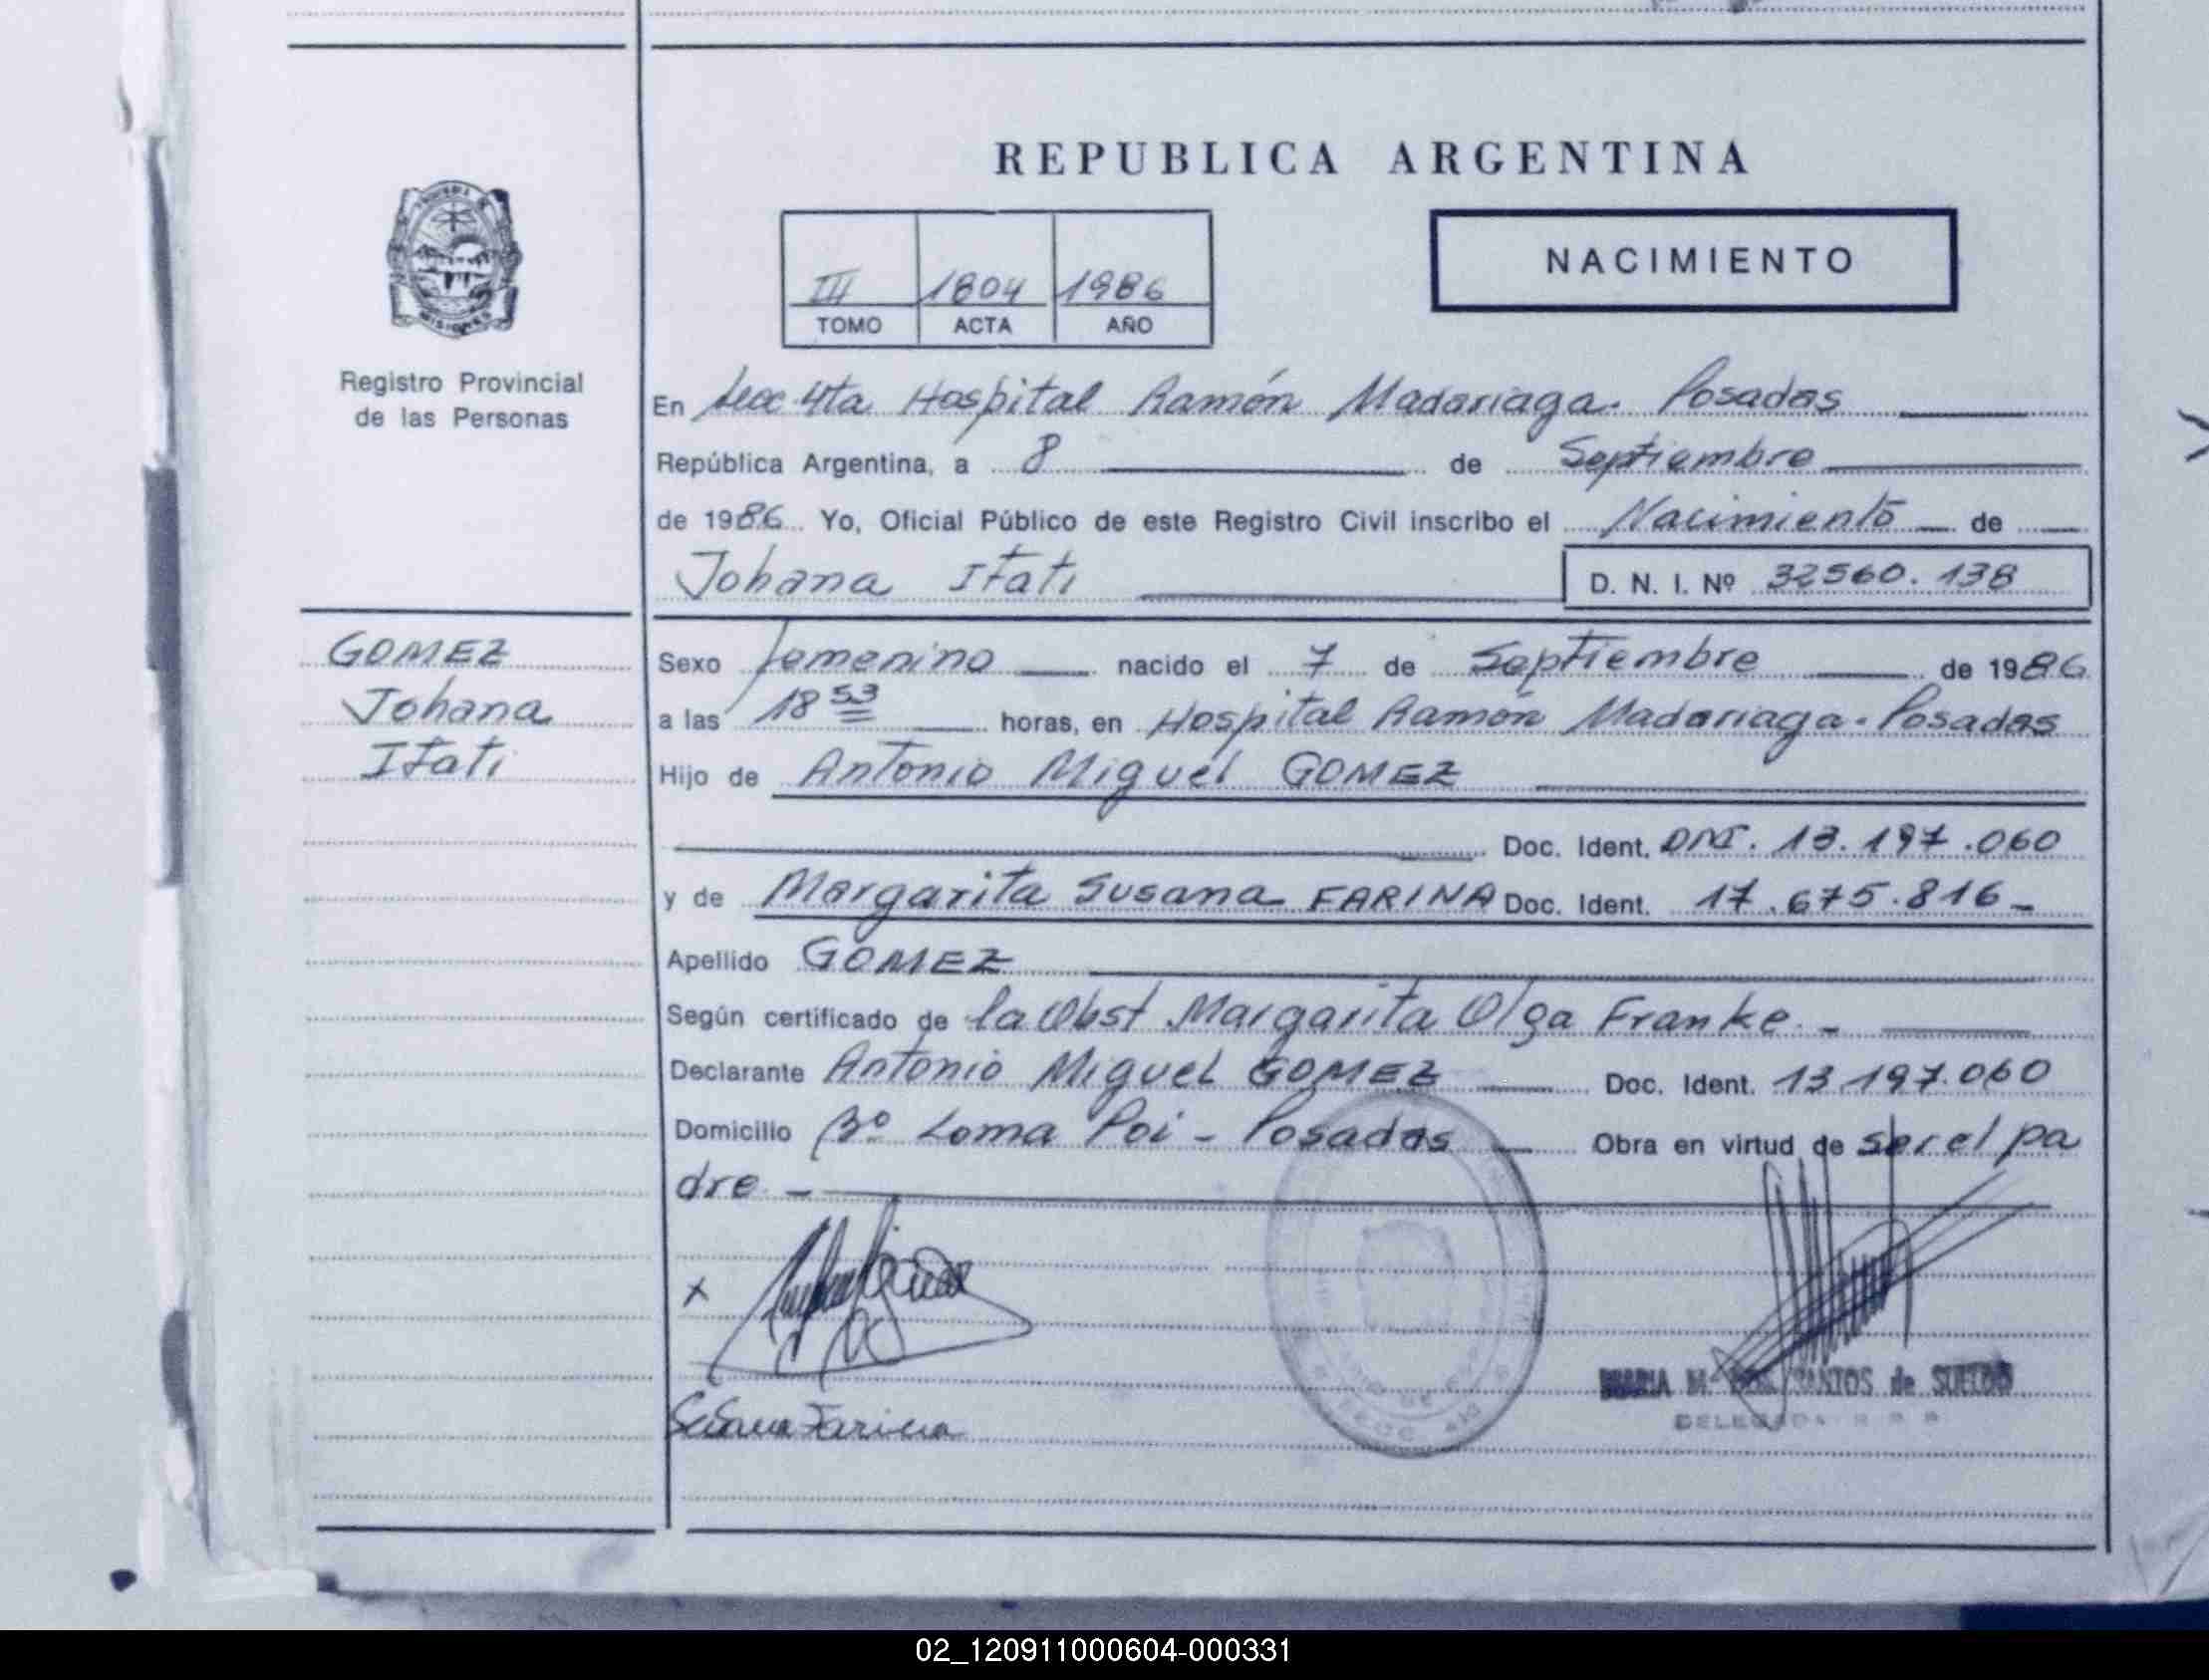 REPUBLICA ARGENTINA
III 1804 1986
TOMO ACTA AÑO
NACIMIENTO
MISIONES
Registro Provincial
de las Personas
En Secc 4ta Hospital Ramón Madariaga - Posadas
República Argentina, a 8 de Septiembre
de 1986 Yo, Oficial Público de este Registro Civil inscribo el Nacimiento de
Johana Itati D. N. I. Nº 32560.138
GOMEZ
Johana
Itati
Sexo femenino nacido el 7 de Septiembre de 1986
a las 18 53 horas, en Hospital Ramón Madariaga - Posadas
Hijo de Antonio Miguel GOMEZ
Doc. Ident. DNI. 13.197.060
y de Margarita Susana FARINA Doc. Ident. 17.675.816 -
Apellido GOMEZ
Según certificado de la Obst Margarita Olga Franke. -
Declarante Antonio Miguel GOMEZ Doc. Ident. 13.197.060
Domicilio Bº Loma Poi - Posadas Obra en virtud de ser el pa
dre. -
x
Susana Farina
MARIA M. DOS SANTOS de SUELDO
DELEGADA R. P. P.
02_120911000604-000331